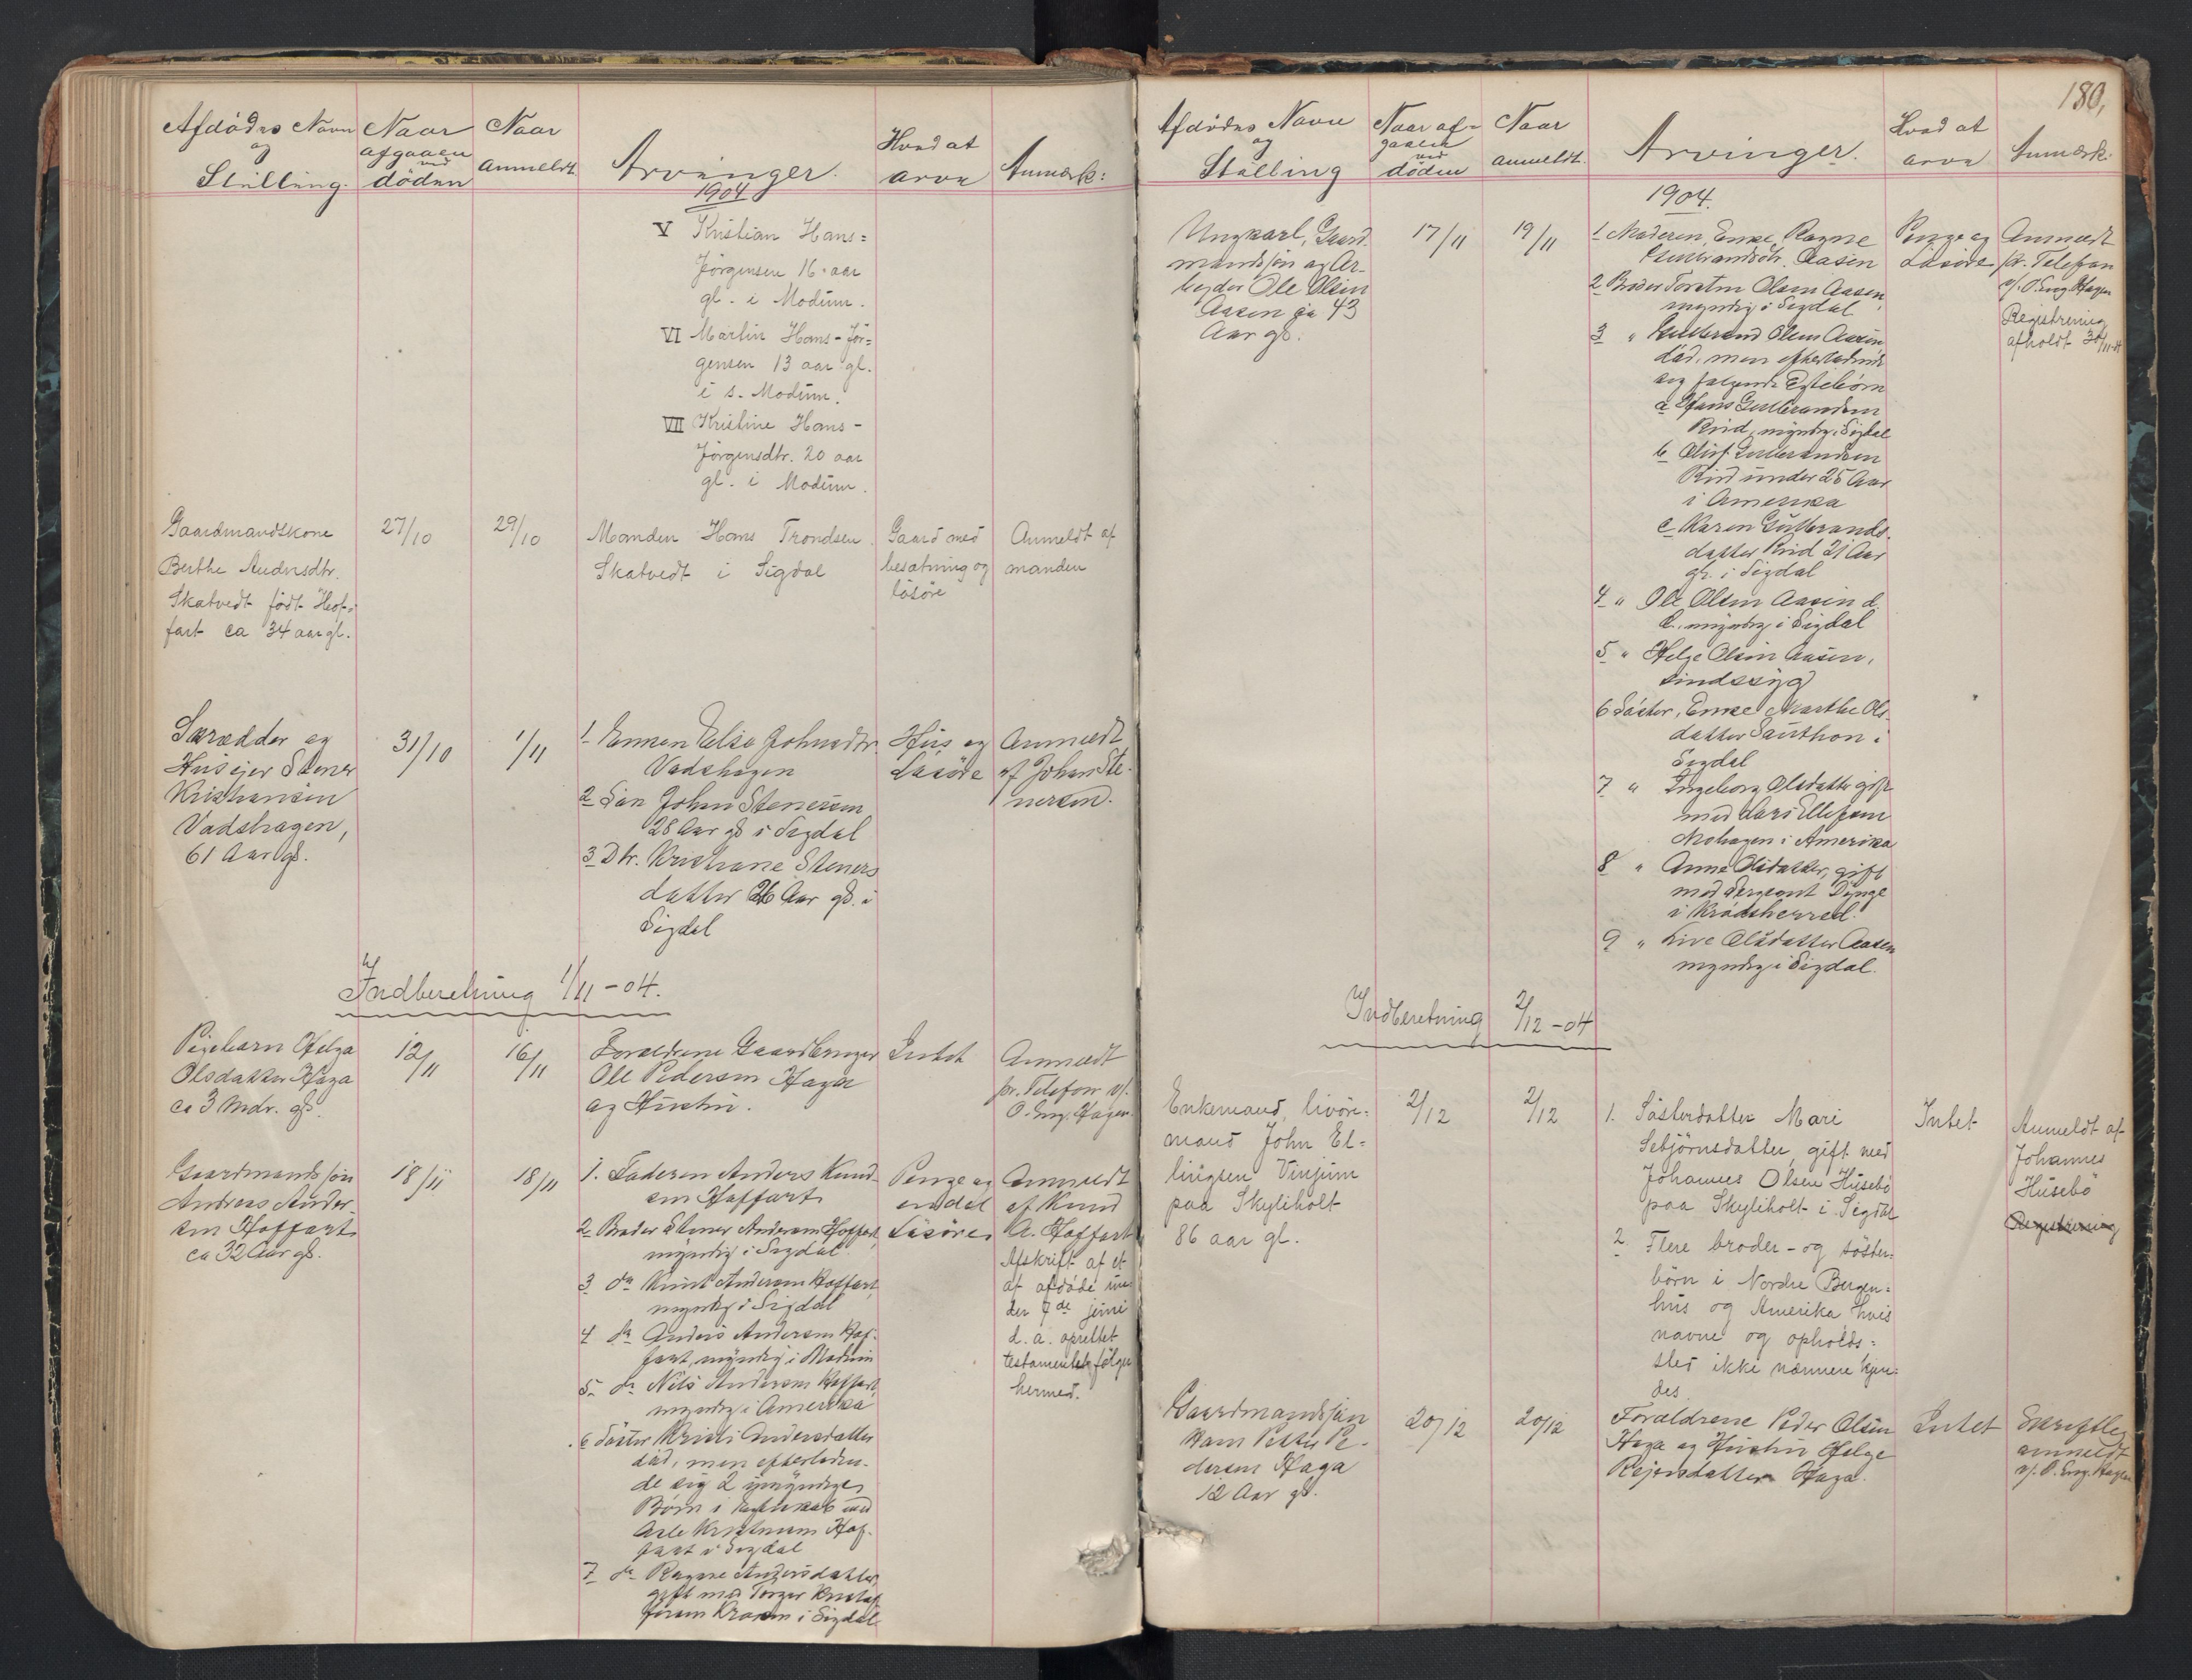 Afdödes Navn
og
Stilling.
Naar
afgaaen
ved
döden
Naar
anmeldt.
Arvinger.
Hvad at
arve
Anmærk:
1904
V Kristian Hans=
Jörgensen 16 aar
gl. i Modum.
VI Martin Hans-Jör=
gensen 13 aar gl.
i s. Modum.
VII Kristine Hans-
Jörgensdtr. 20 aar
gl. i Modum.
Gaardmandskone
Berthe Audensdtr.
Skatvedt födt Hof-
fart ca 34 aar gl.
27/10
29/10
Manden Hans Trondsen
Skatvedt i Sigdal
Gaard med
besætning og
lösöre
Anmeldt af
manden
Skrædder og
Huseier Stener
Kristiansen
Vadshagen,
61 Aar gl.
31/10
1/11
1 Enken Else Johnsdtr.
Vadshagen
2 Sön John Stenersen
28 Aar gl i Sigdal
3 Dtr. Kristiane Steners
datter 26 Aar gl. i
Sigdal
Hus og
Lösöre
Anmeldt
af Johan Ste-
nersen.
Indberetning 1/11-04.
Pigebarn Helga
Olsdatter Haga
ca 3 Mdr. gl.
12/11
16/11
Forældrene Gaardbruger
Ole Pedersen Haga
og Hustru.
Intet
Anmeldt
pr. Telefon v/
O. Eng. Hagen
Gaardmandssön
Andreas Ander
sen Hoffart
ca 32 Aar gl.
18/11
18/11
1. Faderen Anders Knud-
sen Hoffart
2 Broder Stener Andersen Hoffart
myndig i Sigdal.
3 do Knut Andersen Hoffart,
myndig i Sigdal
4 do Anders Andersen Hof-
fart, myndig i Modum
5 do Nils Andersen Hoffart,
myndig i Amerika
6 Söster Kristi Andersdatter
död, men efterladen-
de sig 2 umyndige
Börn i Egteskab med
Asle Kristensen Hof-
fart i Sigdal
7 do Ragne Andersdatter,
gift med Torger Kristof
fersen Kraasen i Sigdal
Penge og
endel
Lösöre
Anmeldt
af Knud
A. Hoffart
Afskrift af et
af afdöde un-
der 7de juni
d. a. oprettet
testamente fölger
hermed.
180,
Afdödes Navn
og
Stilling
Naar af-
gaaen
ved
döden
Naar
anmeldt.
Arvinger.
Hvad at
arve
Anmærk:
1904.
Ungkarl, Gaard-
mandssön og Ar-
beider Ole Olsen
Aasen ca 43
Aar gl.
17/11
19/11
1 Moderen, Enke Ragne
Gulbrandsdtr. Aasen
2 Broder Torsten Olsen Aasen,
myndig i Sigdal
3 " Gulbrand Olsen Aasen
död, men efterladende
sig fölgende Egtebörn
a Hans Gulbrandsen
Rud, myndig i Sigdal
b Oluf Gulbrandsen
Rud under 25 Aar
i Amerika
c Karen Gulbrands-
datter Rud 21 Aar
gl. i Sigdal
4 " Ole Olsen Aasen d.
e., myndig i Sigdal
5 " Helge Olsen Aasen,
sindssyg
6 Söster, Enke Marthe Ols-
datter Sauthon i
Sigdal
7 " Ingeborg Olsdatter gift
med Lars Ellefsen
Mohagen i Amerika
8 " Anne Olsdatter, gift
med Sergeant Dynge
i Krödsherred.
9 " Live Olsdatter Aasen
myndig i Sigdal.
Penge og
Lösöre
Anmeldt
pr. Telefon
v/. O. Eng. Hagen
Registrering
afholdt 30/11-04
Indberetning 2/12-04
Enkemand, livöre-
mand John El-
lingsen Vinjum
paa Skyliholt
86 aar gl.
2/12
2/12
1. Sösterdatter Mari
Sebjörnsdatter, gift med
Johannes Olsen Husebö
paa Skyliholt i Sigdal
2 Flere broder- og söster-
börn i Nordre Bergen-
hus og Amerika hvis
navne og opholds-
sted ikke nærmere kjen-
des
Intet
Anmeldt af
Johannes
Husebö
Registrering
Gaardmandssön
Hans Petter Pe-
dersen Haga
12 Aar gl.
20/12
20/12
Forældrene Peder Olsen
Haga og Hustru Helge
Reiersdatter Haga.
Intet
Skriftlig
anmeldt
v/. O. Eng. Hagen